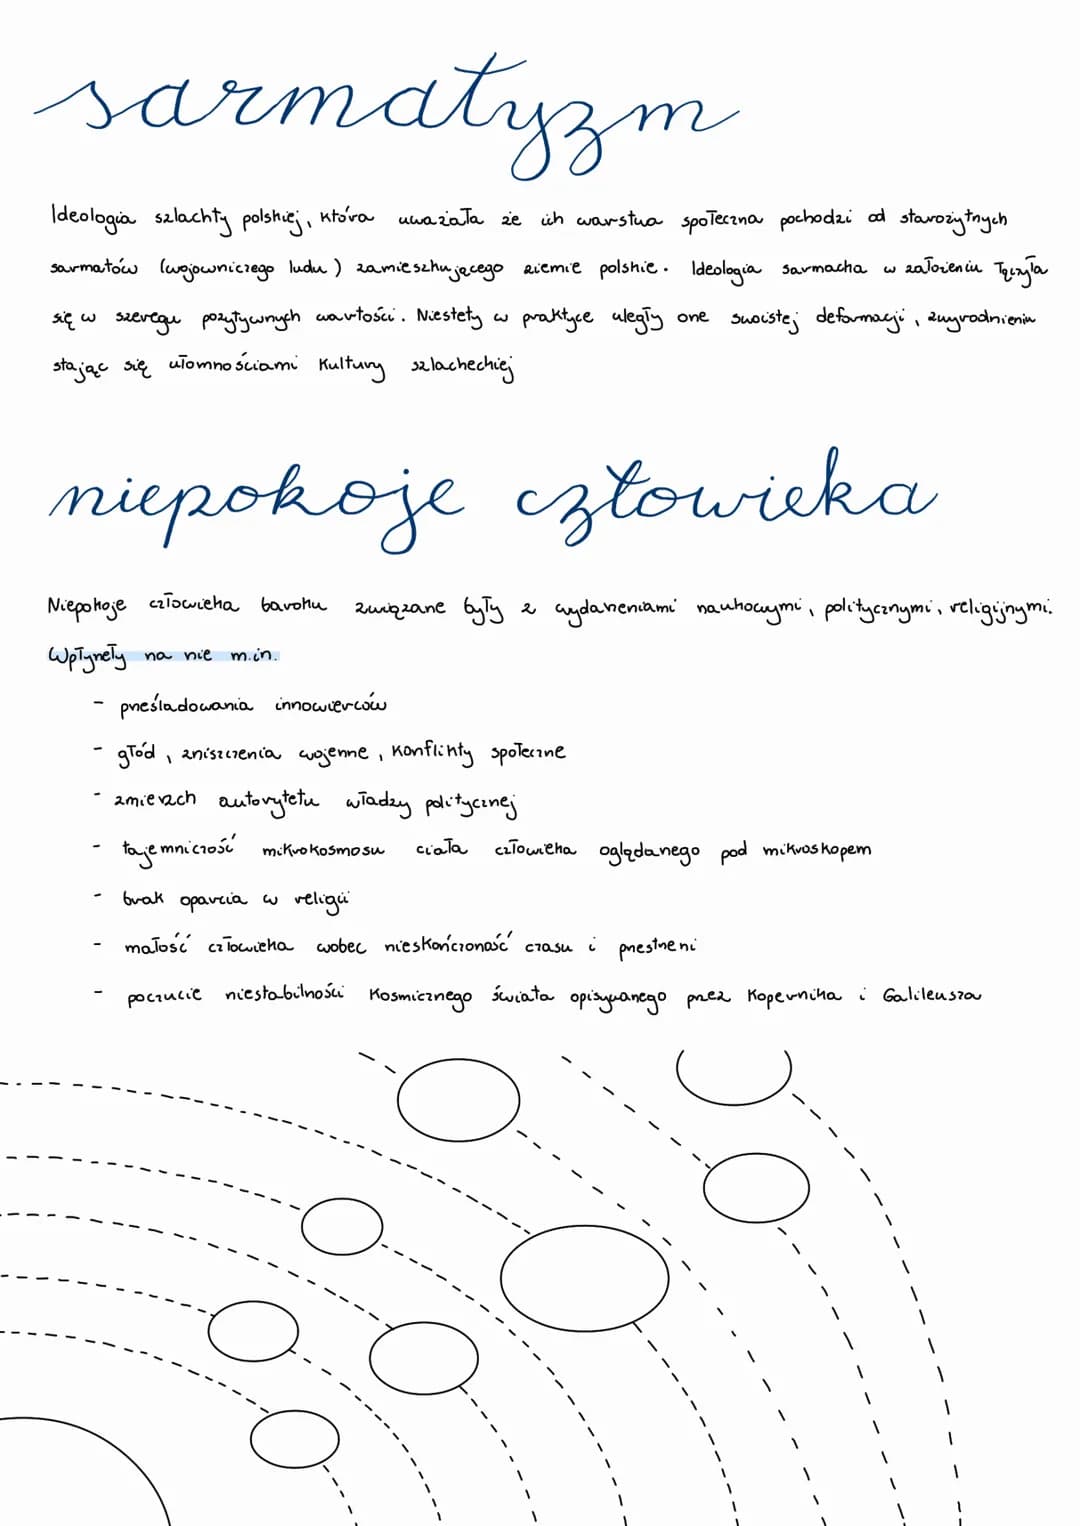 sarmatyzm
Ideologia szlachty polskiej, która uważała że ich warstwa społeczna pochodzi od starożytnych
sarmatów (wojowniczego ludu) zamieszkującego ziemie polskie. Ideologia sarmacka w założeniu łączyła
się w szeregu pozytywnych wartości. Niestety w praktyce uległy one swoistej deformacji, zwyrodnieniu
stając się ułomnościami kultury szlacheckiej
niepokoje człowieka
Niepokoje człowieka baroku związane były z wydarzeniami naukowymi, politycznymi, religijnymi.
Wpłynęły na nie m.in.
- prześladowania innowierców
- głód, zniszczenia wojenne, konflikty społeczne
- zmierzch autorytetu władzy politycznej
- tajemniczość mikrokosmosu ciała człowieka oglądanego pod mikroskopem
- brak oparcia w religii
- małość człowieka wobec nieskończoność czasu i przestrzeni
- poczucie niestabilności kosmicznego świata opisywanego przez Kopernika i Galileusza